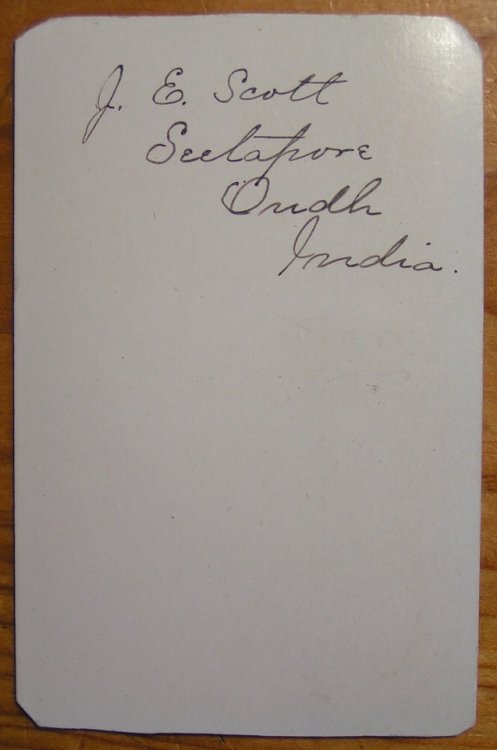 J. E. Scott
Seetapore
Oudh
India.